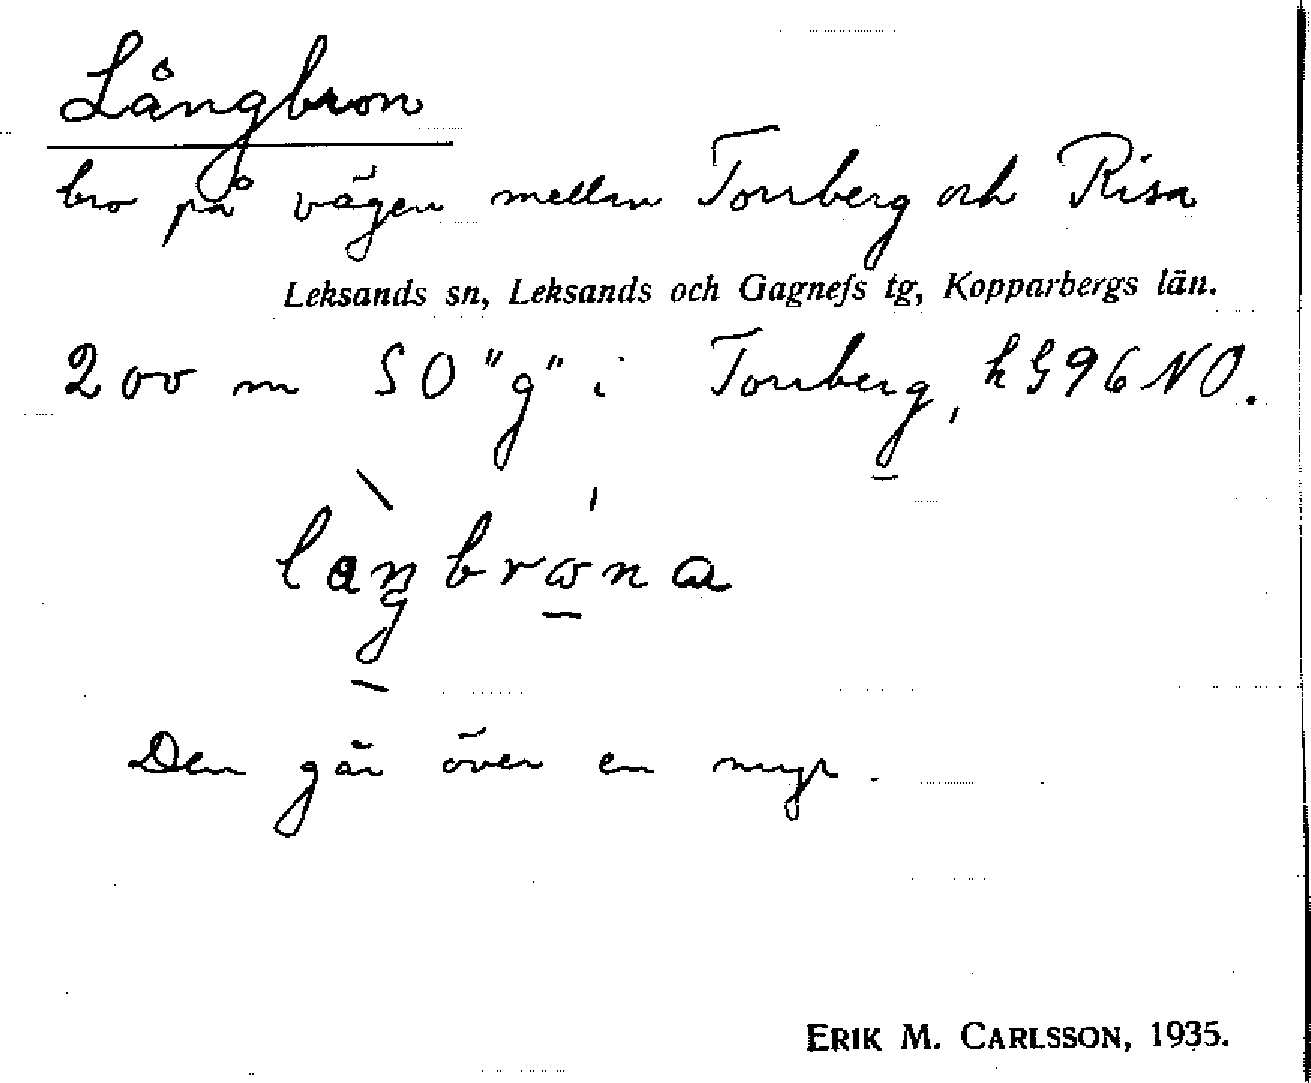 Långbron
bro på vägen mellan Torrberg och Risa
Leksands sn, Leksands och Gagnefs tg, Kopparbergs län.
200 m SO "g" i Torrberg, h G 96 NO.
laŋbrɷna
Den går över en myr.
ERIK M. CARLSSON, 1935.